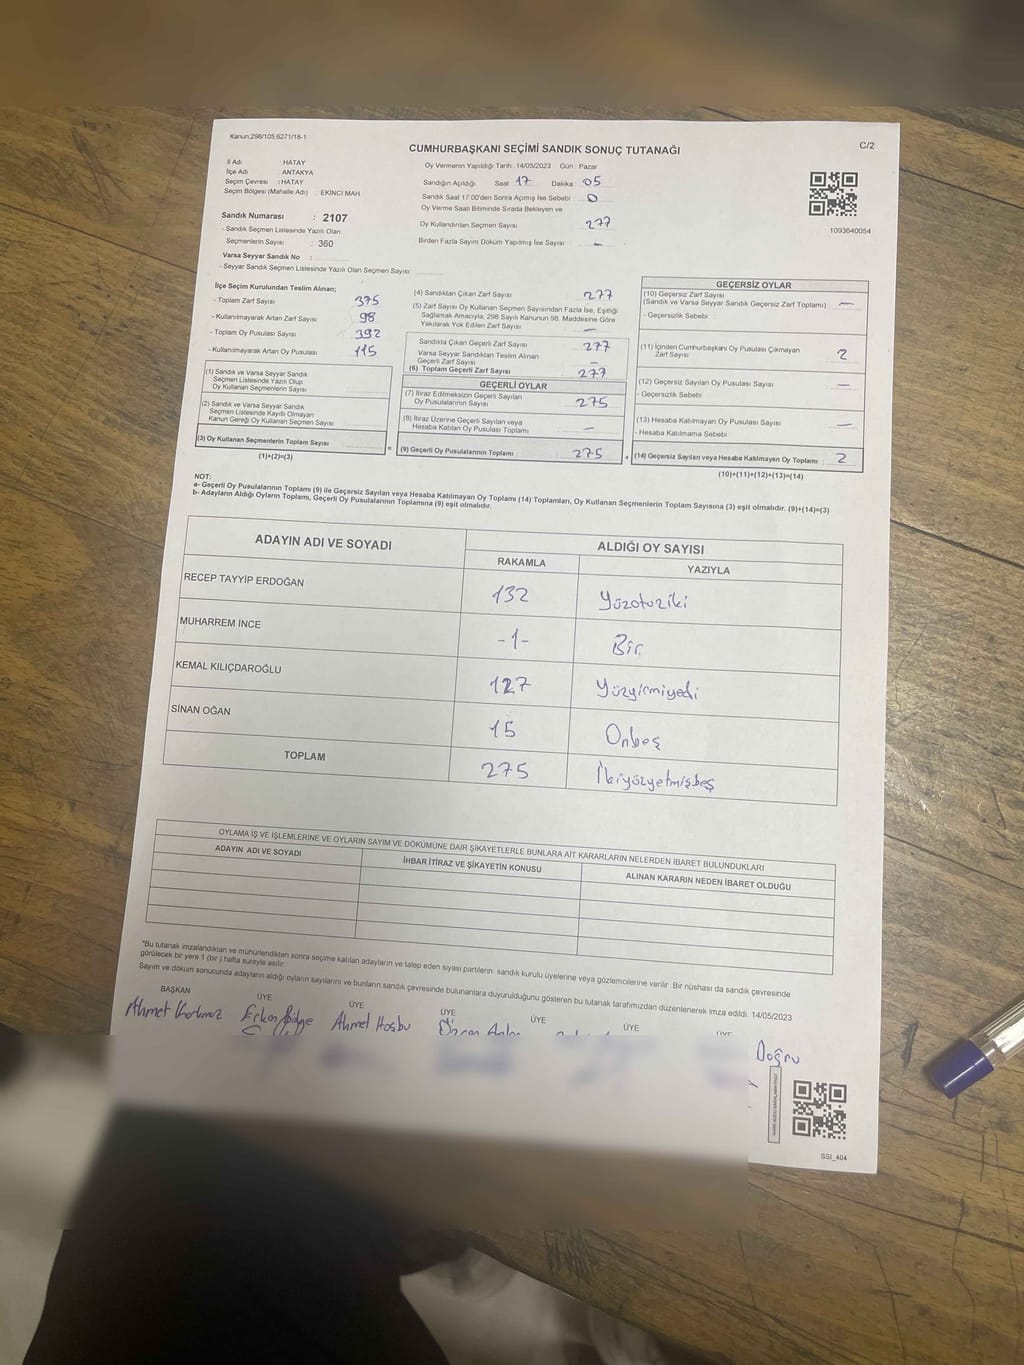 Kanun:298/105,6271/18-1
C/2
CUMHURBAŞKANI SEÇİMİ SANDIK SONUÇ TUTANAĞI
İl Adı : HATAY
İlçe Adı : ANTAKYA
Seçim Çevresi : HATAY
Seçim Bölgesi (Mahalle Adı) : EKİNCİ MAH
Sandık Numarası : 2107
- Sandık Seçmen Listesinde Yazılı Olan
Seçmenlerin Sayısı : 360
Varsa Seyyar Sandık No :
- Seyyar Sandık Seçmen Listesinde Yazılı Olan Seçmen Sayısı
Oy Vermenin Yapıldığı Tarih : 14/05/2023 Gün : Pazar
Sandığın Açıldığı Saat : 17 Dakika : 05
Sandık Saat 17.00'den Sonra Açılmış İse Sebebi : 0
Oy Verme Saati Bitiminde Sırada Bekleyen ve
Oy Kullandırılan Seçmen Sayısı 277
Birden Fazla Sayım Döküm Yapılmış İse Sayısı –
1093640054
İlçe Seçim Kurulundan Teslim Alınan;
- Toplam Zarf Sayısı 375
- Kullanılmayarak Artan Zarf Sayısı 98
- Toplam Oy Pusulası Sayısı 392
- Kullanılmayarak Artan Oy Pusulası 115
(1) Sandık ve Varsa Seyyar Sandık
Seçmen Listesinde Yazılı Olup
Oy Kullanan Seçmenlerin Sayısı
(2) Sandık ve Varsa Seyyar Sandık
Seçmen Listesinde Kayıtlı Olmayan
Kanun Gereği Oy Kullanan Seçmen Sayısı
(3) Oy Kullanan Seçmenlerin Toplam Sayısı
(1)+(2)=(3)
(4) Sandıktan Çıkan Zarf Sayısı 277
(5) Zarf Sayısı Oy Kullanan Seçmen Sayısından Fazla İse, Eşitliği
Sağlamak Amacıyla, 298 Sayılı Kanunun 98. Maddesine Göre
Yakılarak Yok Edilen Zarf Sayısı –
Sandıkta Çıkan Geçerli Zarf Sayısı 277
Varsa Seyyar Sandıktan Teslim Alınan
Geçerli Zarf Sayısı –
(6) Toplam Geçerli Zarf Sayısı 277
GEÇERLİ OYLAR
(7) İtiraz Edilmeksizin Geçerli Sayılan
Oy Pusulalarının Sayısı 275
(8) İtiraz Üzerine Geçerli Sayılan veya
Hesaba Katılan Oy Pusulası Toplamı –
= (9) Geçerli Oy Pusulalarının Toplamı 275 +
GEÇERSİZ OYLAR
(10) Geçersiz Zarf Sayısı
(Sandık ve Varsa Seyyar Sandık Geçersiz Zarf Toplamı) –
- Geçersizlik Sebebi
(11) İçinden Cumhurbaşkanı Oy Pusulası Çıkmayan
Zarf Sayısı 2
(12) Geçersiz Sayılan Oy Pusulası Sayısı –
- Geçersizlik Sebebi
(13) Hesaba Katılmayan Oy Pusulası Sayısı –
- Hesaba Katılmama Sebebi
(14) Geçersiz Sayılan veya Hesaba Katılmayan Oy Toplamı 2
(10)+(11)+(12)+(13)=(14)
NOT:
a- Geçerli Oy Pusulalarının Toplamı (9) ile Geçersiz Sayılan veya Hesaba Katılmayan Oy Toplamı (14) Toplamları, Oy Kullanan Seçmenlerin Toplam Sayısına (3) eşit olmalıdır. (9)+(14)=(3)
b- Adayların Aldığı Oyların Toplamı, Geçerli Oy Pusulalarının Toplamına (9) eşit olmalıdır.
ADAYIN ADI VE SOYADI ALDIĞI OY SAYISI
RAKAMLA YAZIYLA
RECEP TAYYİP ERDOĞAN 132 Yüzotuziki
MUHARREM İNCE -1- Bir
KEMAL KILIÇDAROĞLU 127 Yüzyirmiyedi
SİNAN OĞAN 15 Onbeş
TOPLAM 275 İkiyüzyetmişbeş
OYLAMA İŞ VE İŞLEMLERİNE VE OYLARIN SAYIM VE DÖKÜMÜNE DAİR ŞİKAYETLERLE BUNLARA AİT KARARLARIN NELERDEN İBARET BULUNDUKLARI
ADAYIN ADI VE SOYADI İHBAR İTİRAZ VE ŞİKAYETİN KONUSU ALINAN KARARIN NEDEN İBARET OLDUĞU
*Bu tutanak imzalandıktan ve mühürlendikten sonra seçime katılan adayların ve talep eden siyasi partilerin sandık kurulu üyelerine veya gözlemcilerine verilir. Bir nüshası da sandık çevresinde
görülecek bir yere 1 (bir) hafta süreyle asılır.
Sayım ve döküm sonucunda adayların aldığı oyların sayılarını ve bunların sandık çevresinde bulunanlara duyurulduğunu gösteren bu tutanak tarafımızdan düzenlenerek imza edildi. 14/05/2023
BAŞKAN ÜYE ÜYE ÜYE ÜYE ÜYE ÜYE
Ahmet Ahmet Hoşbu
Doğru
SSI_404